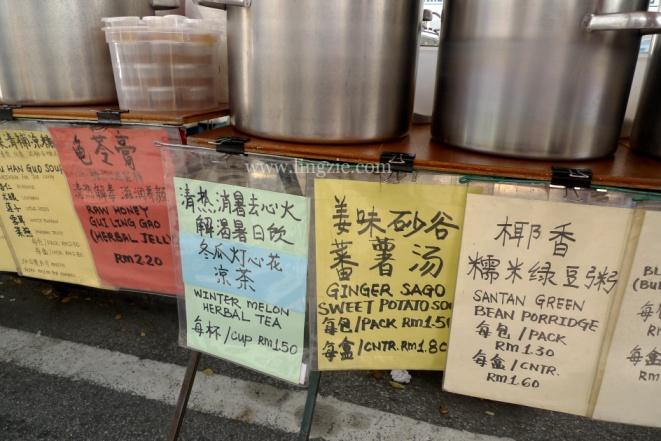 HAN GUO SOUP
龟苓膏
RAW HONEY
GUI LING GAO
(HERBAL JELLY)
RM2.20
www.lingzie.com
清热消暑去心火
解渴暑日飲
冬瓜灯心花
凉茶
WINTER MELON
HERBAL TEA
每杯/CUP RM1.50
姜味砂谷
蕃薯汤
GINGER SAGO
SWEET POTATO SOU
每包/PACK RM1.50
每盒/CNTR. RM1.80
椰香
糯米绿豆粥
SANTAN GREEN
BEAN PORRIDGE
每包/PACK
RM1.30
每盒/CNTR.
RM1.60